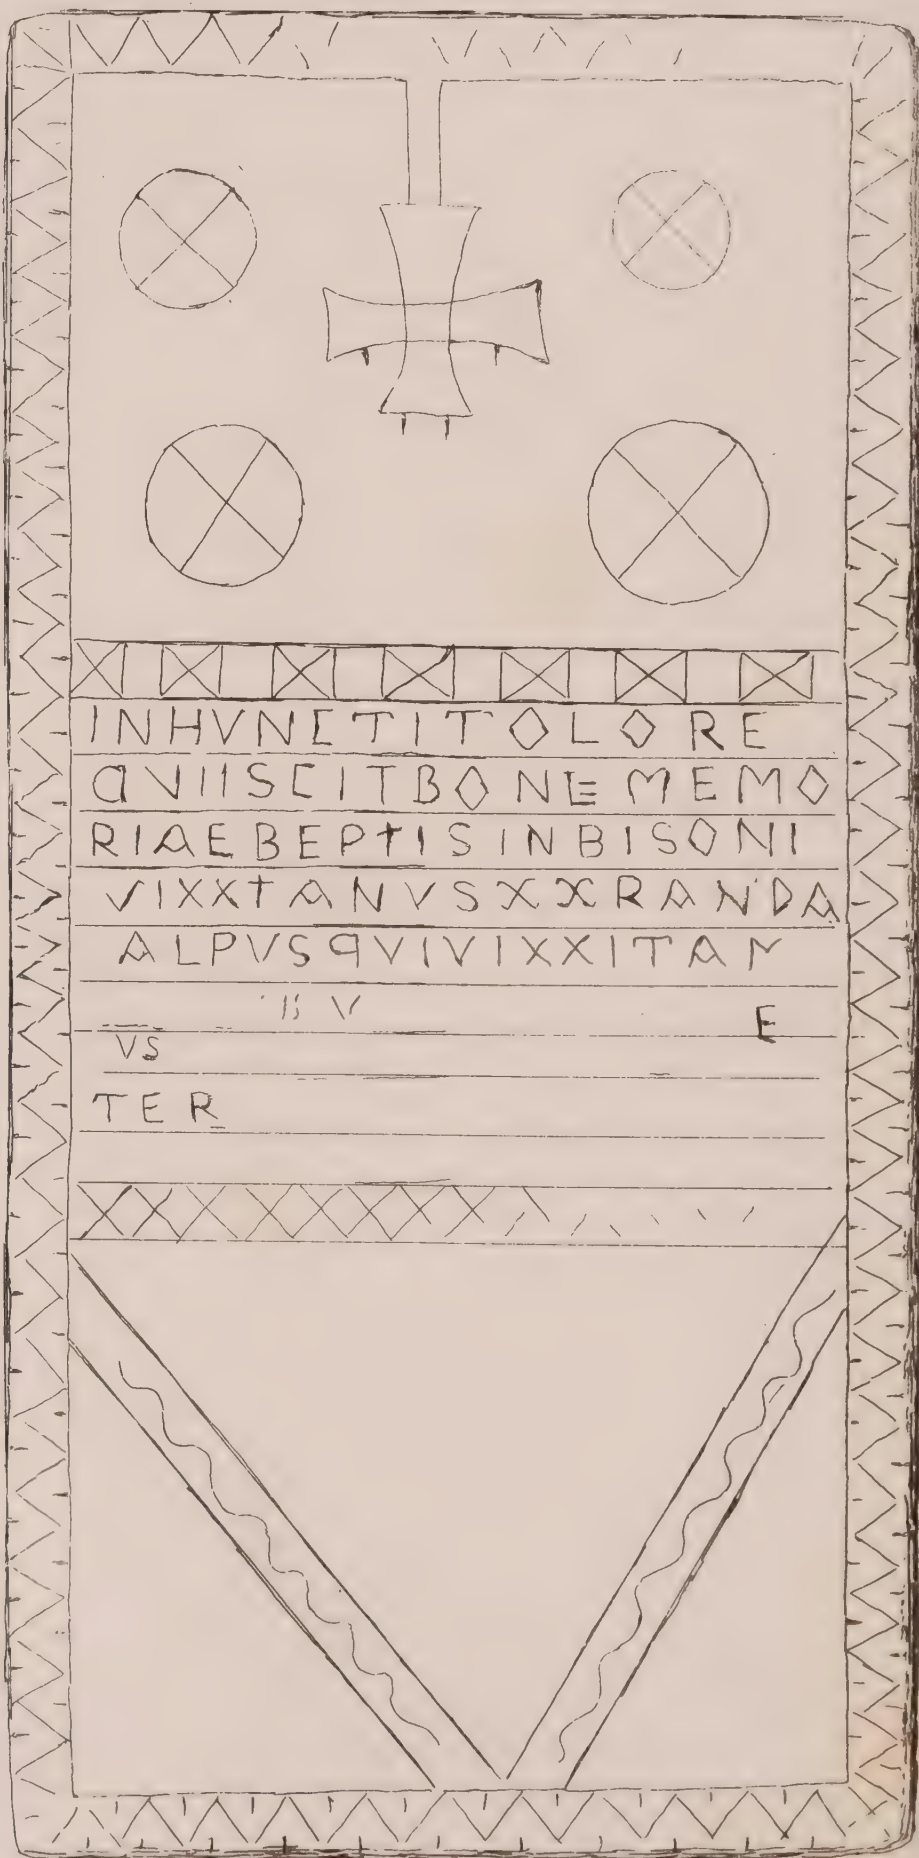 INHVNCTITOLORE
QVIISCITBONEMEMO
RIAEBEPTISINBISONI
VIXXTANVSXXRANDA
ALPVSQVIVIXXITAN
V E
VS
TER